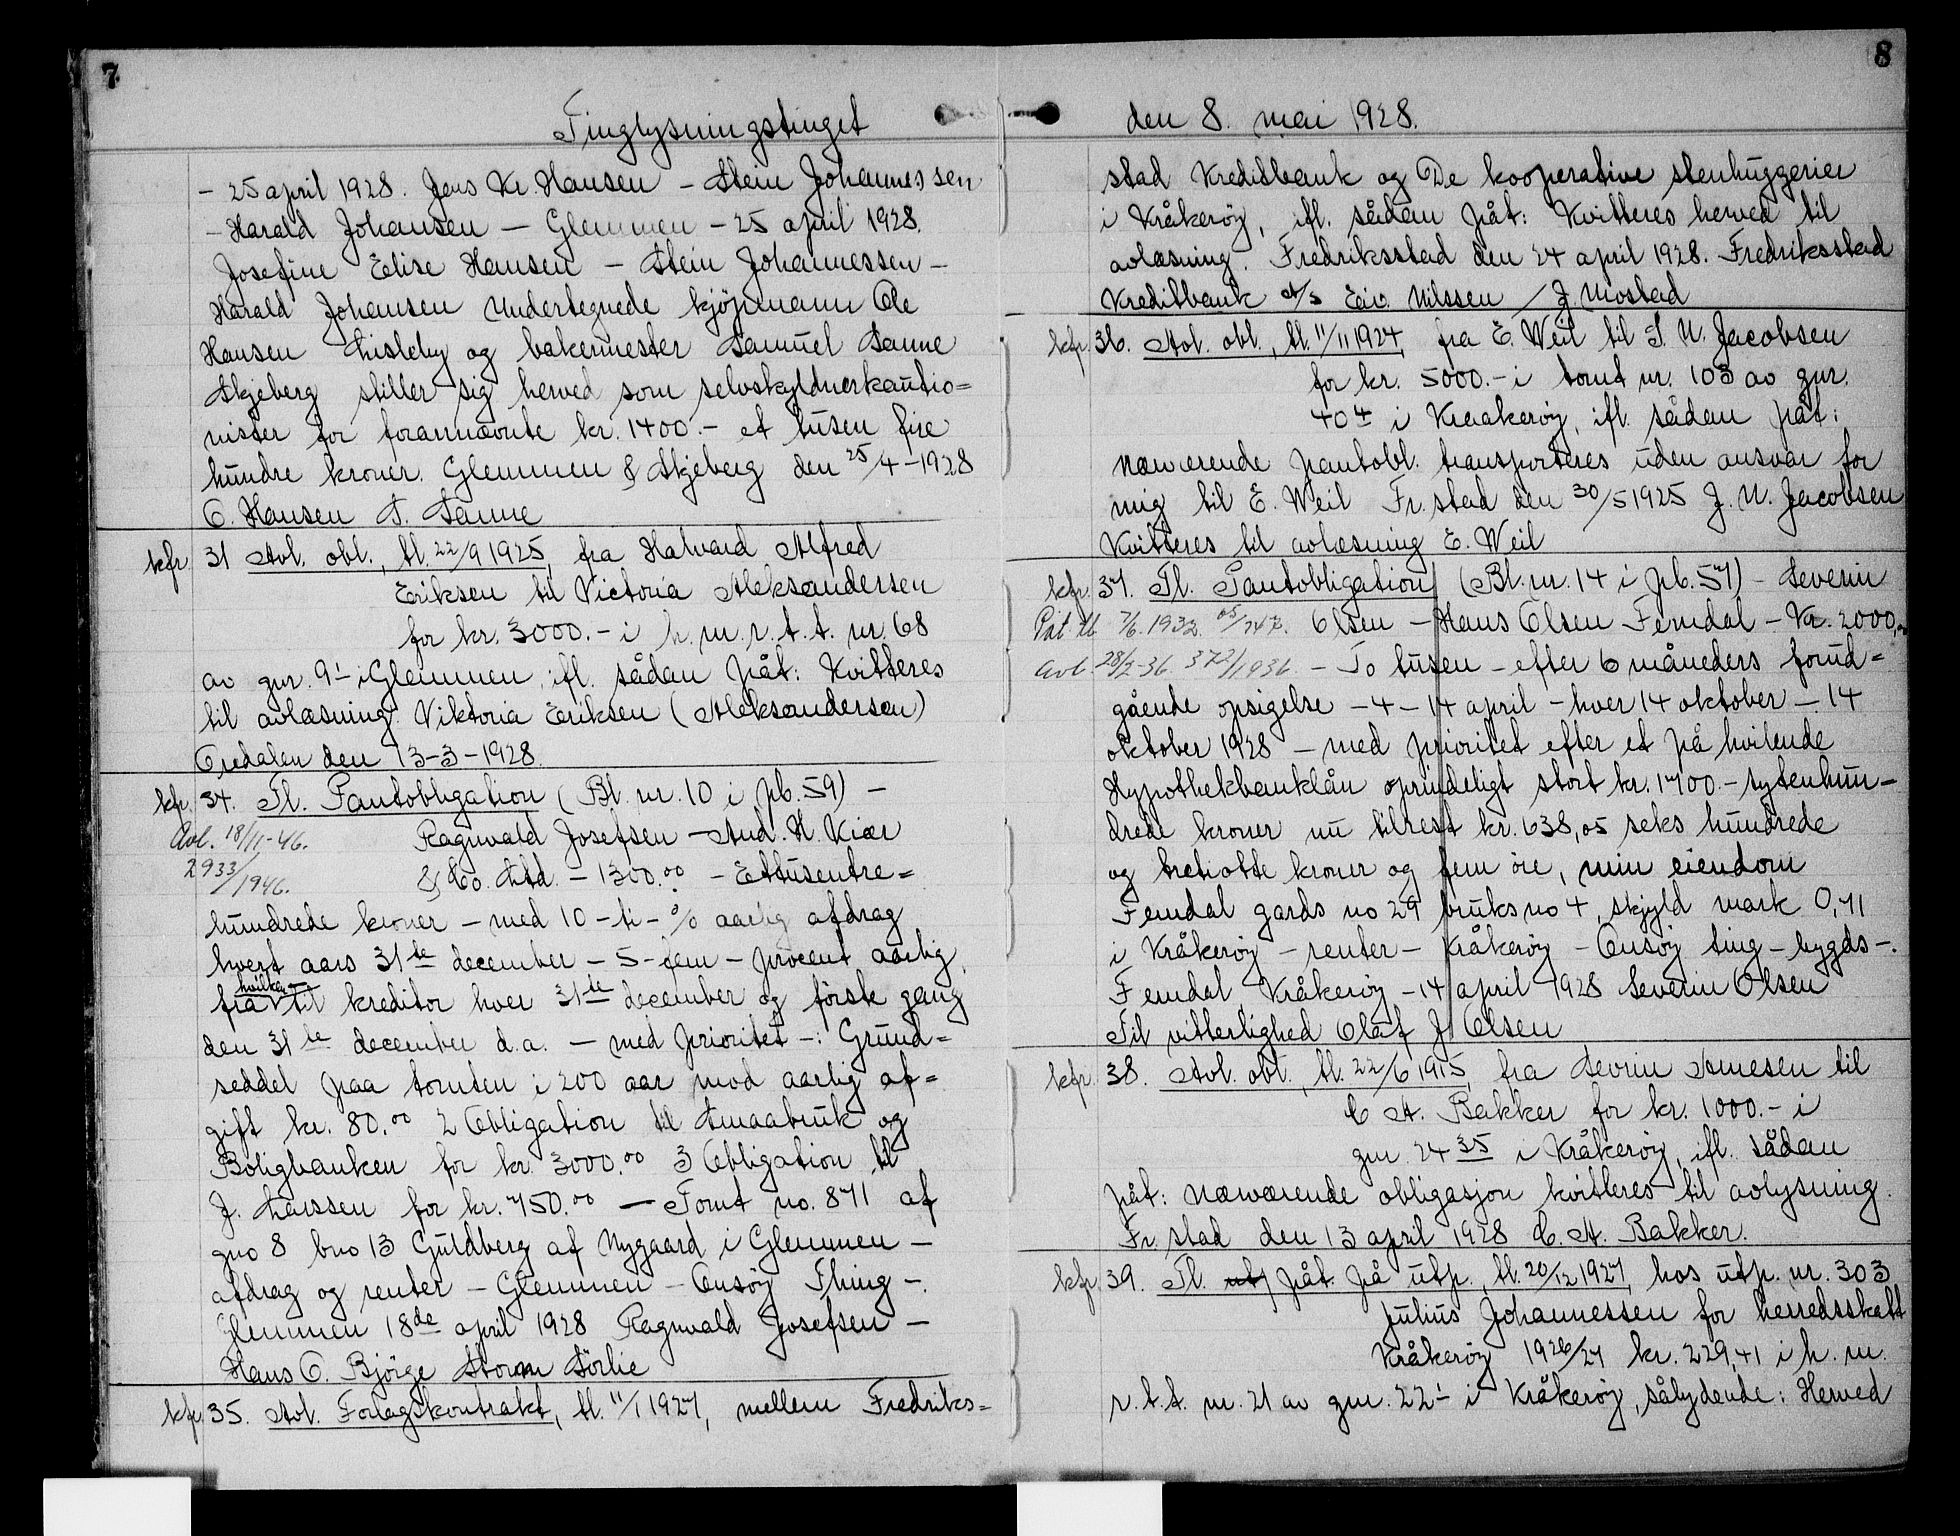 7
Tinglysningstinget
- 25 april 1928. Jens Kr. Hansen - Stein Johannessen
- Harald Johansen - Glemmen - 25 april 1928.
Josefine Elise Hansen - Stein Johannessen -
Harald Johansen Undertegnede kjöpmann Ole
Hansen Lisleby og bakermester Samuel Sanne
Skjeberg stiller sig herved som selvskyldnerkautio=
nister for forannævnte kr. 1400.- et tusen fire
hundre kroner. Glemmen & Skjeberg den 25/4-1928
O. Hansen S. Sanne
kfr. 31 Avl. obl., tl. 22/9 1925, fra Halvard Alfred
Eriksen til Victoria Aleksandersen
for kr. 3000.- i h. m. r. t. t. nr. 68
av gnr. 9¹ i Glemmen, ifl. sådan påt: Kvitteres
til avlæsning. Viktoria Eriksen (Aleksandersen)
Oredalen den 13-3-1928.
kfr. 34. Tl. Pantobligation (Bl. nr. 10 i pb. 59) -
Avl. 18/11-46. Ragnvald Josefsen - And. H. Kiær
2933/1946. & Co. Ltd. - 1300.00 - Ettusentre=
hundrede kroner - med 10 - ti - % aarlig afdrag
hvert aars 31te december - 5 - fem - procent aarlig
hvilken
fra til kreditor hver 31te december og förste gang
den 31te december d.a. - med prioritet -: Grund=
seddel paa tomten i 200 aar mod aarlig af=
gift kr. 80.00 2 Obligation til Smaabruk og
Boligbanken for kr. 3000.00 3 Obligation til
J. Larssen for kr. 750.00 - Tomt no. 871 af
gno 8 bno 13 Guldberg af Nygaard i Glemmen -
afdrag og renter - Glemmen - Onsöy Thing -.
Glemmen 18de april 1928 Ragnvald Josefsen -
Hans O. Bjöige Storm Sörlie
kfr. 35. Avl. Forlagskontrakt, tl. 11/1 1927, mellem Fredriks=
8
den 8. mai 1928.
stad Kreditbank og De kooperative stenhuggerier
i Kråkeröy, ifl. sådan påt: Kvitteres herved til
avlæsning. Fredriksstad den 24 april 1928. Fredriksstad
Kreditbank A/S Eiv. Nilssen / J. Mostad
kfr. 36. Avl. obl., tl. 11/11 1924, fra E. Weil til J. N. Jacobsen
for kr. 5000.- i tomt nr. 103 av gnr.
40⁴ i Kraakeröy, ifl. sådan påt:
Nærværende pantobl. transporteres uden ansvar for
mig til E. Weil Fr. stad den 30/5 1925 J. N. Jacobsen
Kvitteres til avlæsning E. Weil
kfr. 37. Tl. Pantobligation (Bl. nr. 14 i pb. 57) - Severin
Påt. tl. 7/6. 1932. Olsen - Hans Olsen Femdal - Kr. 2000,00
Avl. 28/2-36 372/1936. - To tusen - efter 6 måneders forud=
gående opsigelse - 4 - 14 april - hver 14 oktober - 14
oktober 1928 - med prioritet efter et på hvilende
Hypothekbanklån oprindeligt stort kr. 1700.- syttenhun-
drede kroner nu tilrest kr. 638,05 seks hundrede
og tretiotte kroner og fem öre, min eiendom
Femdal gards no 29 bruks no 4, skyld mark 0,71
i Kråkeröy - renter - Kråkeröy - Onsöy ting - bygds -.
Femdal, Kråkeröy - 14 april 1928 Severin Olsen
Til vitterlighed Olaf J. Olsen
kfr. 38. Avl. obl., tl. 22/6 1915, fra Sevrin Arnesen til
C. A. Bakker for kr. 1000.- i
gnr. 24³⁵ i Kråkeröy, ifl. sådan
påt: Nærværende obligasjon kvitteres til avlysning.
Fr. stad den 13 april 1928 C. A. Bakker.
kfr. 39. Tl. påt. på utp., tl. 20/12 1927, hos utp. nr. 303
Julius Johannessen for herredsskatt
Kråkeröy 1926/27 kr. 229,41 i h. m.
r. t. t. nr. 21 av gnr. 22¹ i Kråkeröy, sålydende: Herved